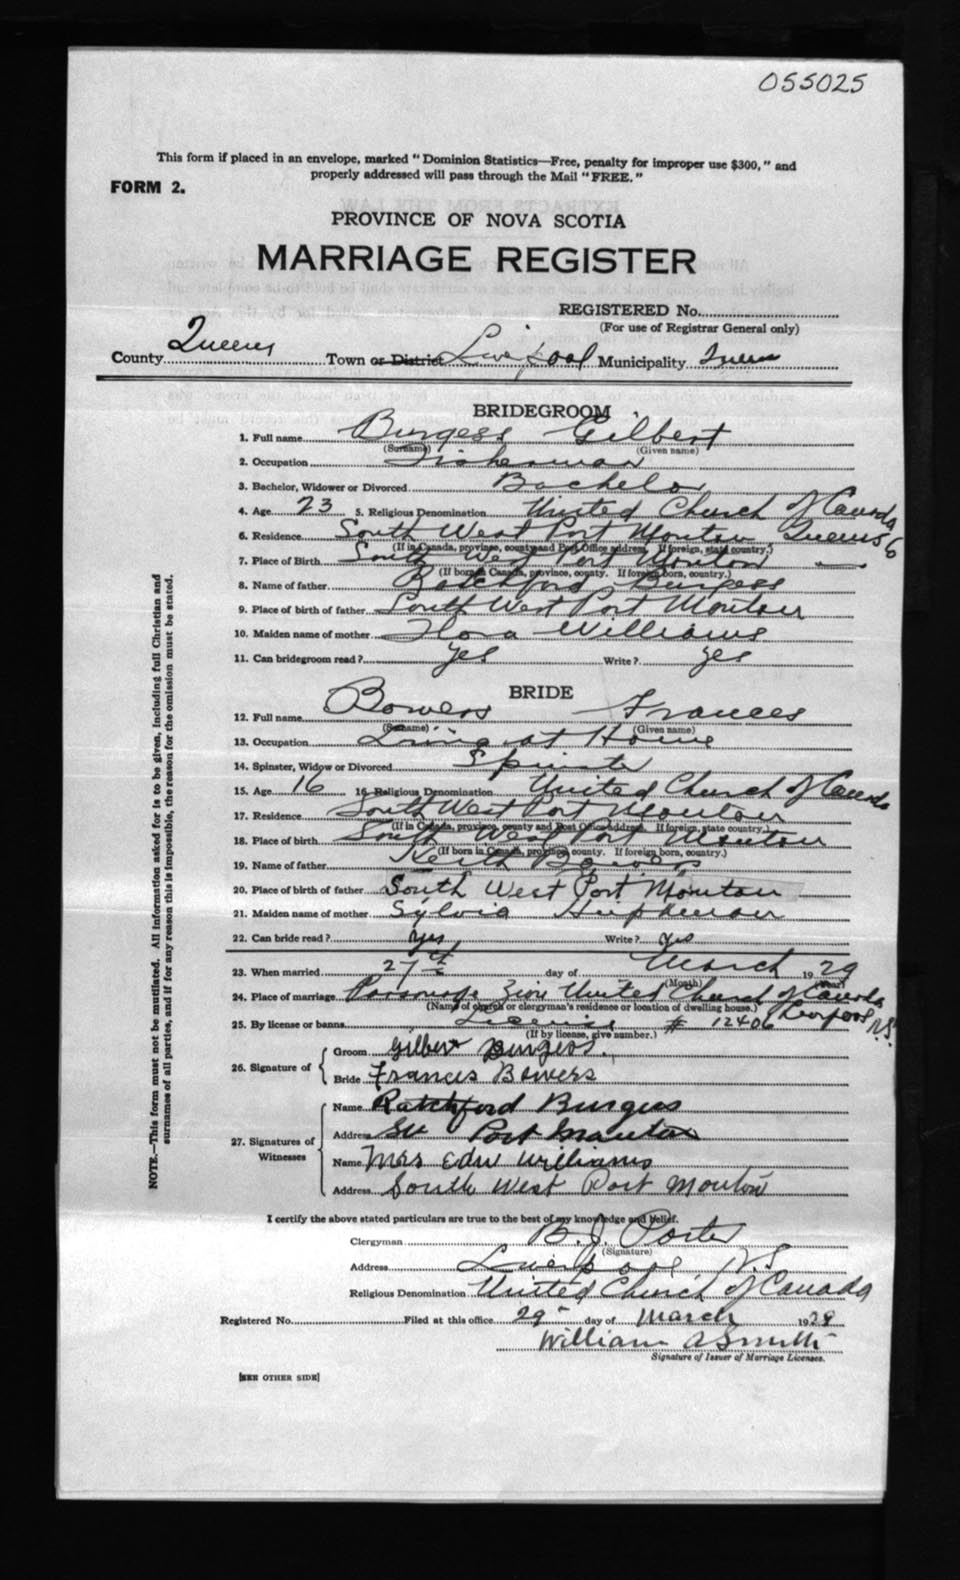 055025
This form if placed in an envelope, marked "Dominion Statistics—Free, penalty for improper use $300," and
properly addressed will pass through the Mail "FREE."
FORM 2.
PROVINCE OF NOVA SCOTIA
MARRIAGE REGISTER
REGISTERED No.
(For use of Registrar General only)
County Queens Town or District Liverpool Municipality Queens
BRIDEGROOM
1. Full name Burgess Gilbert
(Surname) (Given name)
2. Occupation Fisherman
3. Bachelor, Widower or Divorced Bachelor
4. Age 23 5. Religious Denomination United Church of Canada
6. Residence South West Port Mouton Queens Co
(If in Canada, province, county and Post Office address. If foreign, state country.)
7. Place of Birth South West Port Mouton
(If born in Canada, province, county. If foreign born, country.)
8. Name of father Ratchford Burgess
9. Place of birth of father South West Port Mouton
10. Maiden name of mother Flora Williams
11. Can bridegroom read? yes Write? yes
BRIDE
12. Full name Bowers Frances
(Surname) (Given name)
13. Occupation Living at Home
14. Spinster, Widow or Divorced Spinster
15. Age 16 16. Religious Denomination United Church of Canada
17. Residence South West Port Mouton
(If in Canada, province, county and Post Office address. If foreign, state country.)
18. Place of birth South West Port Mouton
(If born in Canada, province, county. If foreign born, country.)
19. Name of father Keith Bowers
20. Place of birth of father South West Port Mouton
21. Maiden name of mother Sylvia Huphman
22. Can bride read? yes Write? yes
23. When married 27th day of March 1929
(Month) (Year)
24. Place of marriage Parsonage Zion United Church of Canada
(Name of church or clergyman's residence or location of dwelling house.) Liverpool N.S.
25. By license or banns License # 12406
(If by license, give number.)
26. Signature of
Groom Gilbert Burgess.
Bride Frances Bowers
27. Signatures of Witnesses
Name Ratchford Burgess
Address SW Port Mouton
Name Mrs Edw Williams
Address South West Port Mouton
I certify the above stated particulars are true to the best of my knowledge and belief.
Clergyman B. J. Porter
(Signature)
Address Liverpool N.S
Religious Denomination United Church of Canada
Registered No. Filed at this office 29 day of March 1929
William A Smith
Signature of Issuer of Marriage Licenses.
[SEE OTHER SIDE]
NOTE.—This form must not be mutilated. All information asked for is to be given, including full Christian and
surnames of all parties, and if for any reason this is impossible, the reason for the omission must be stated.